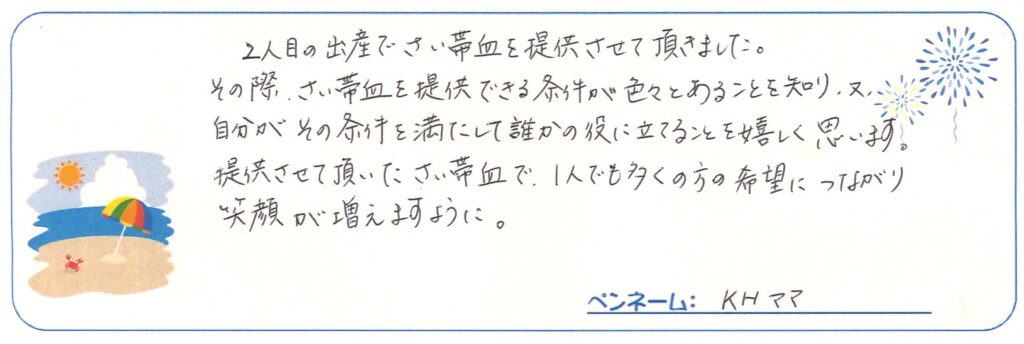 2人目の出産でさい帯血を提供させて頂きました。
その際、さい帯血を提供できる条件が色々とあることを知り、又、
自分がその条件を満たして誰かの役に立てることを嬉しく思います。
提供させて頂いたさい帯血で、1人でも多くの方の希望につながり
笑顔が増えますように。
ペンネーム: KHママ